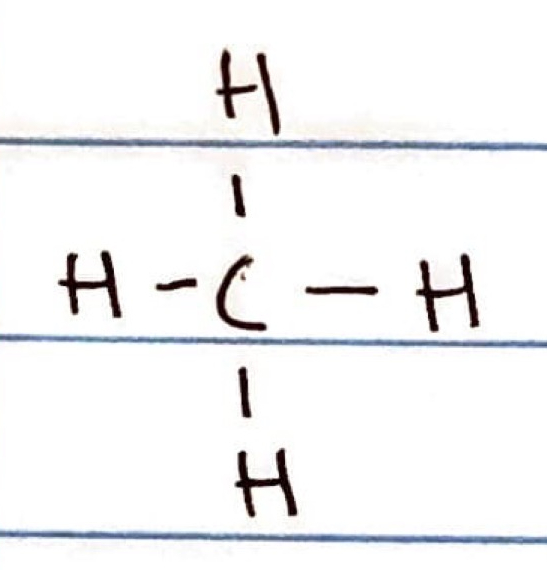 H
|
H - C - H
|
H